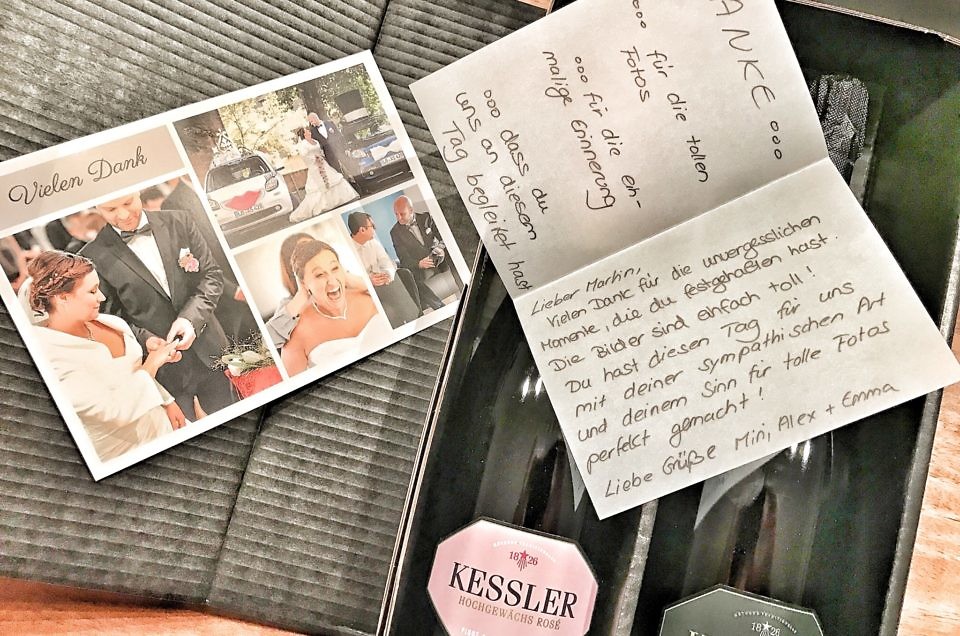 Vielen Dank
ANKE ooo
ooo für die tollen
Fotos
ooo für die ein-
malige Erinnerung
ooo dass du
uns an diesem
Tag begleitet hast
Lieber Martin,
Vielen Dank für die unvergesslichen
Momente, die du festgehalten hast.
Die Bilder sind einfach toll!
Du hast diesen Tag für uns
mit deiner sympathischen Art
und deinem Sinn für tolle Fotos
perfekt gemacht!
Liebe Grüße Mini, Alex + Emma
18 26
KESSLER
HOCHGEWÄCHS ROSÉ
18 26